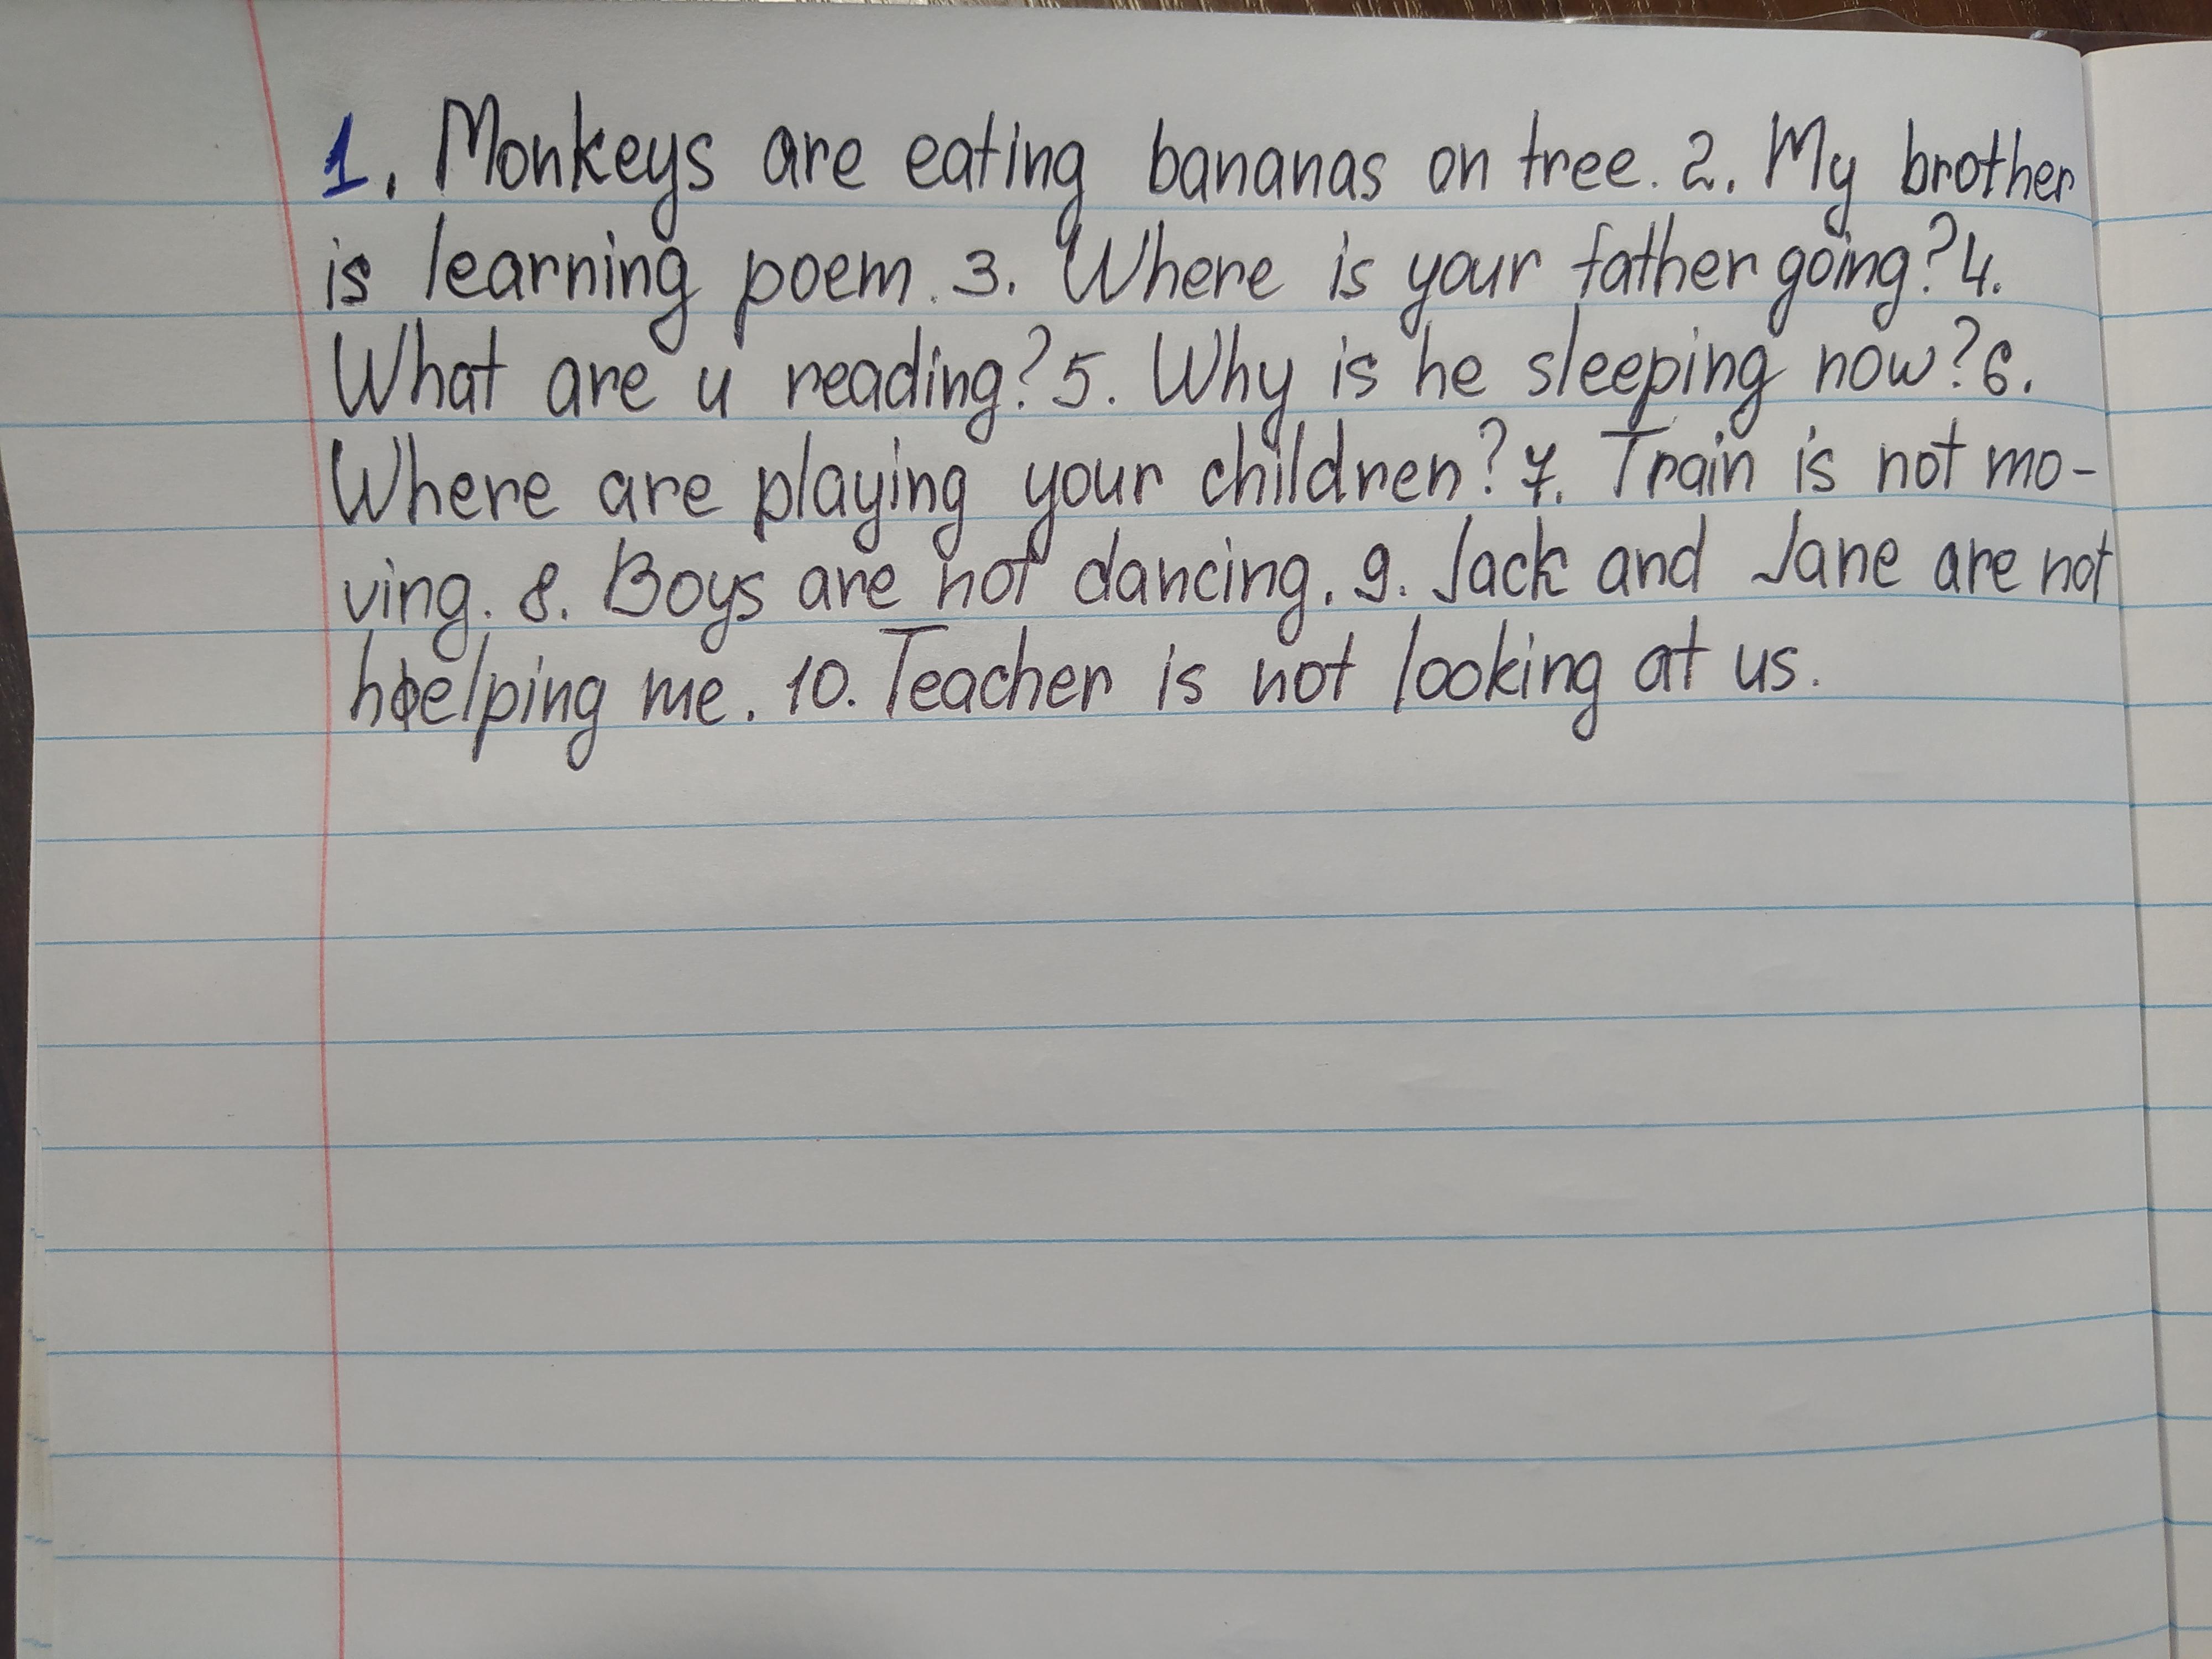 1. Monkeys are eating bananas on tree. 2. My brother
is learning poem. 3. Where is your father going? 4.
What are u reading? 5. Why is he sleeping now? 6.
Where are playing your children? 7. Train is not mo-
ving. 8. Boys are not dancing. 9. Jack and Jane are not
helping me. 10. Teacher is not looking at us.